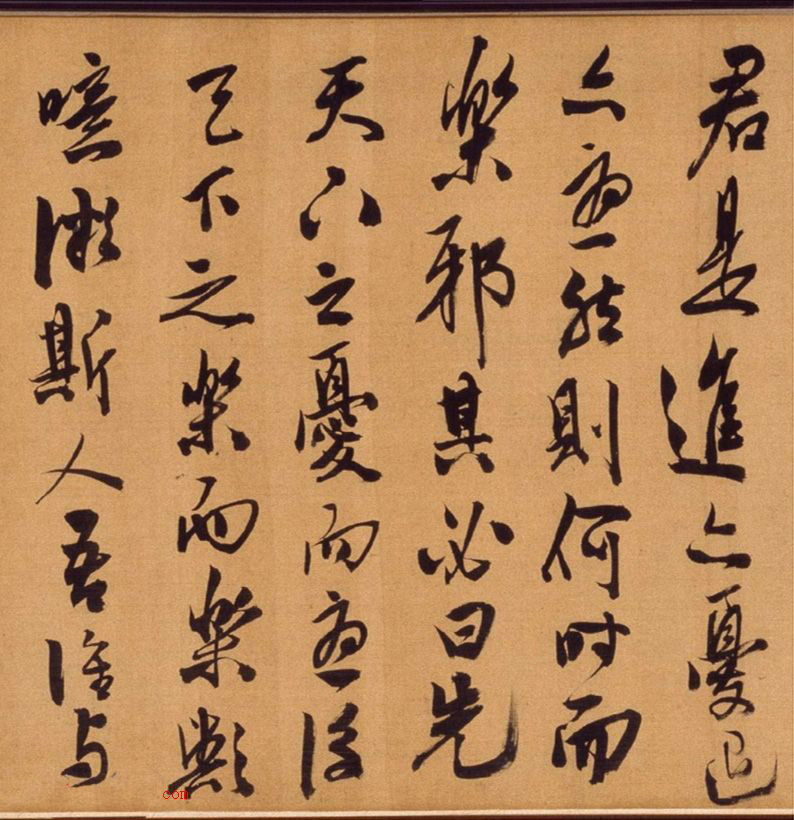 君是進亦憂退
亦憂然則何時而
樂邪其必曰先
天下之憂而憂後
天下之樂而樂歟
噫微斯人吾誰与
com